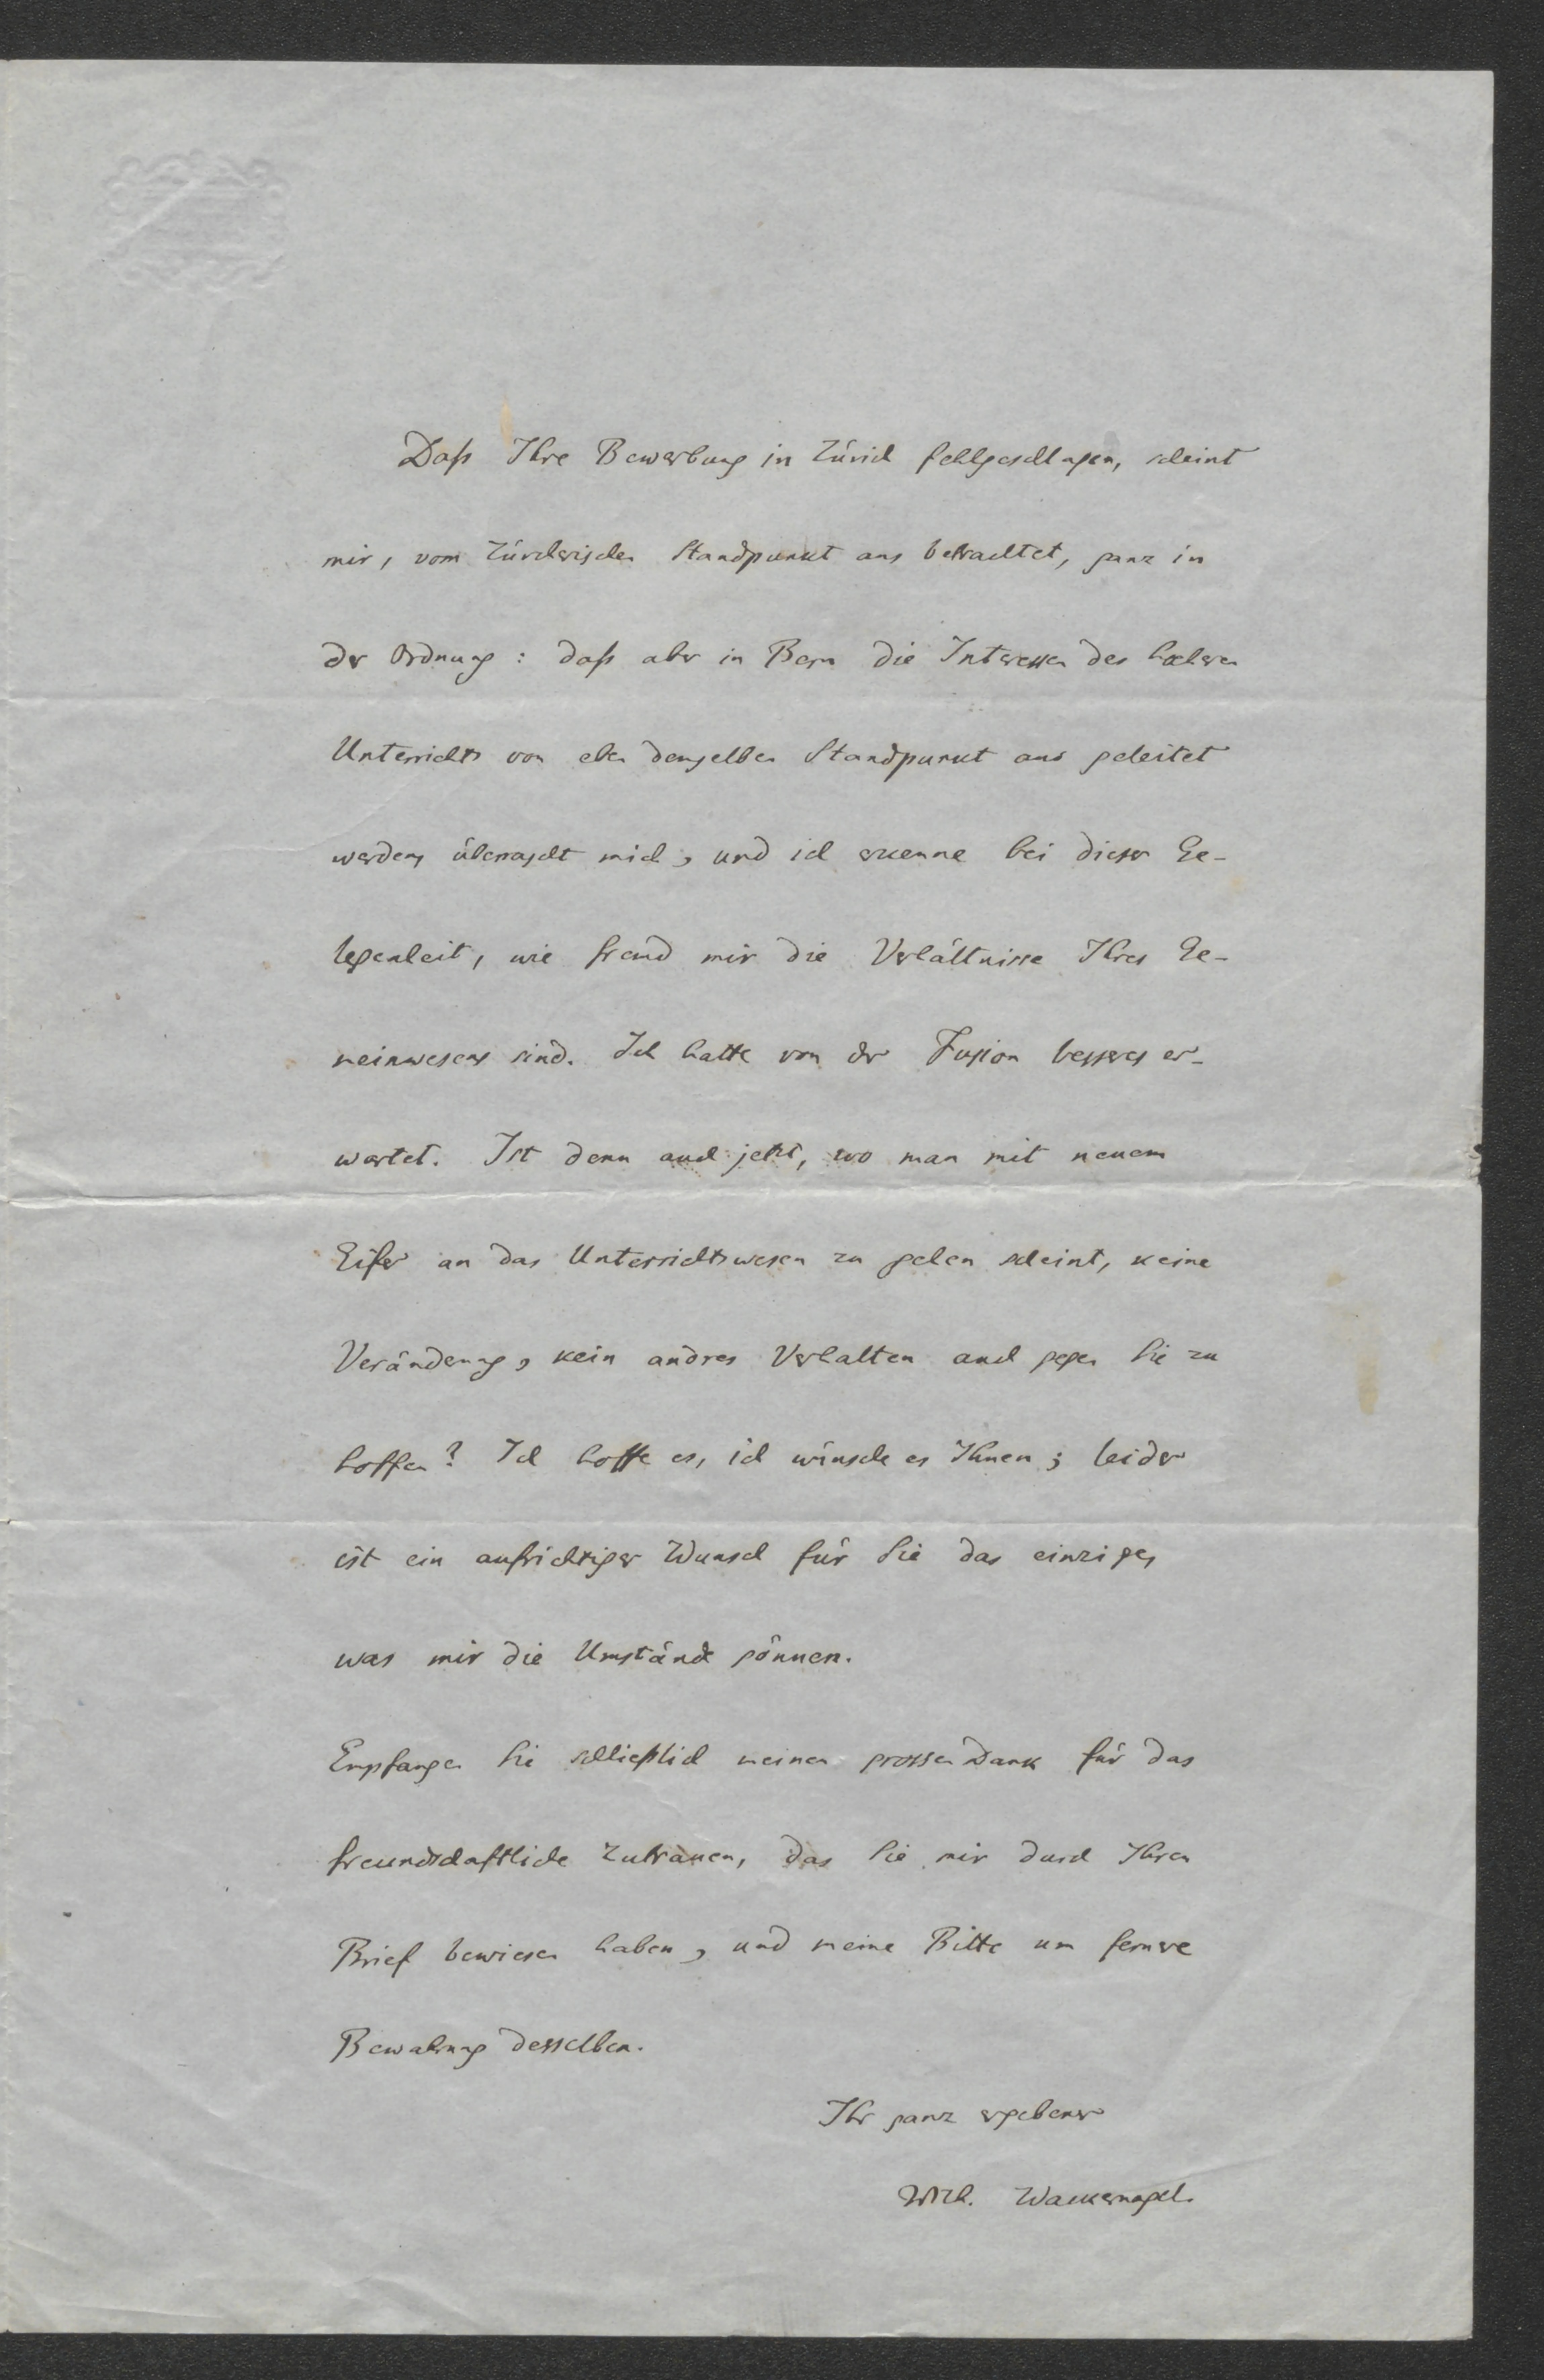 Daß Ihre Bewerbung in Zürich fehlgeschlagen, scheint
mir, vom Zürcherischen Standpunkt aus betrachtet, ganz in
der Ordnung: daß aber in Bern die Interessen des hœheren
Unterrichts von eben demselben Standpunkt aus geleitet
werden, überrascht mich, und ich erkenne bei dieser Ge-
legenheit, wie fremd mir die Verhältnisse Ihres Ge-
meinwesens sind. Ich hatte von der Fusion besseres er-
wartet. Ist denn auch jetzt, wo man mit neuem
Eifer an das Unterrichtswesen zu gehen scheint, keine
Veränderung, kein andres Verhalten auch gegen Sie zu
hoffen? Ich hoffe es, ich wünsche es Ihnen; leider
ist ein aufrichtiger Wunsch für Sie das einzige,
was mir die Umstände gönnen.
Empfangen Sie schließlich meinen grossen Dank für das
freundschaftliche Zutrauen, das Sie mir durch Ihren
Brief bewiesen haben, und meine Bitte um fernere
Bewahrung desselben.
Ihr ganz ergebener
Wilh. Wackernagel.